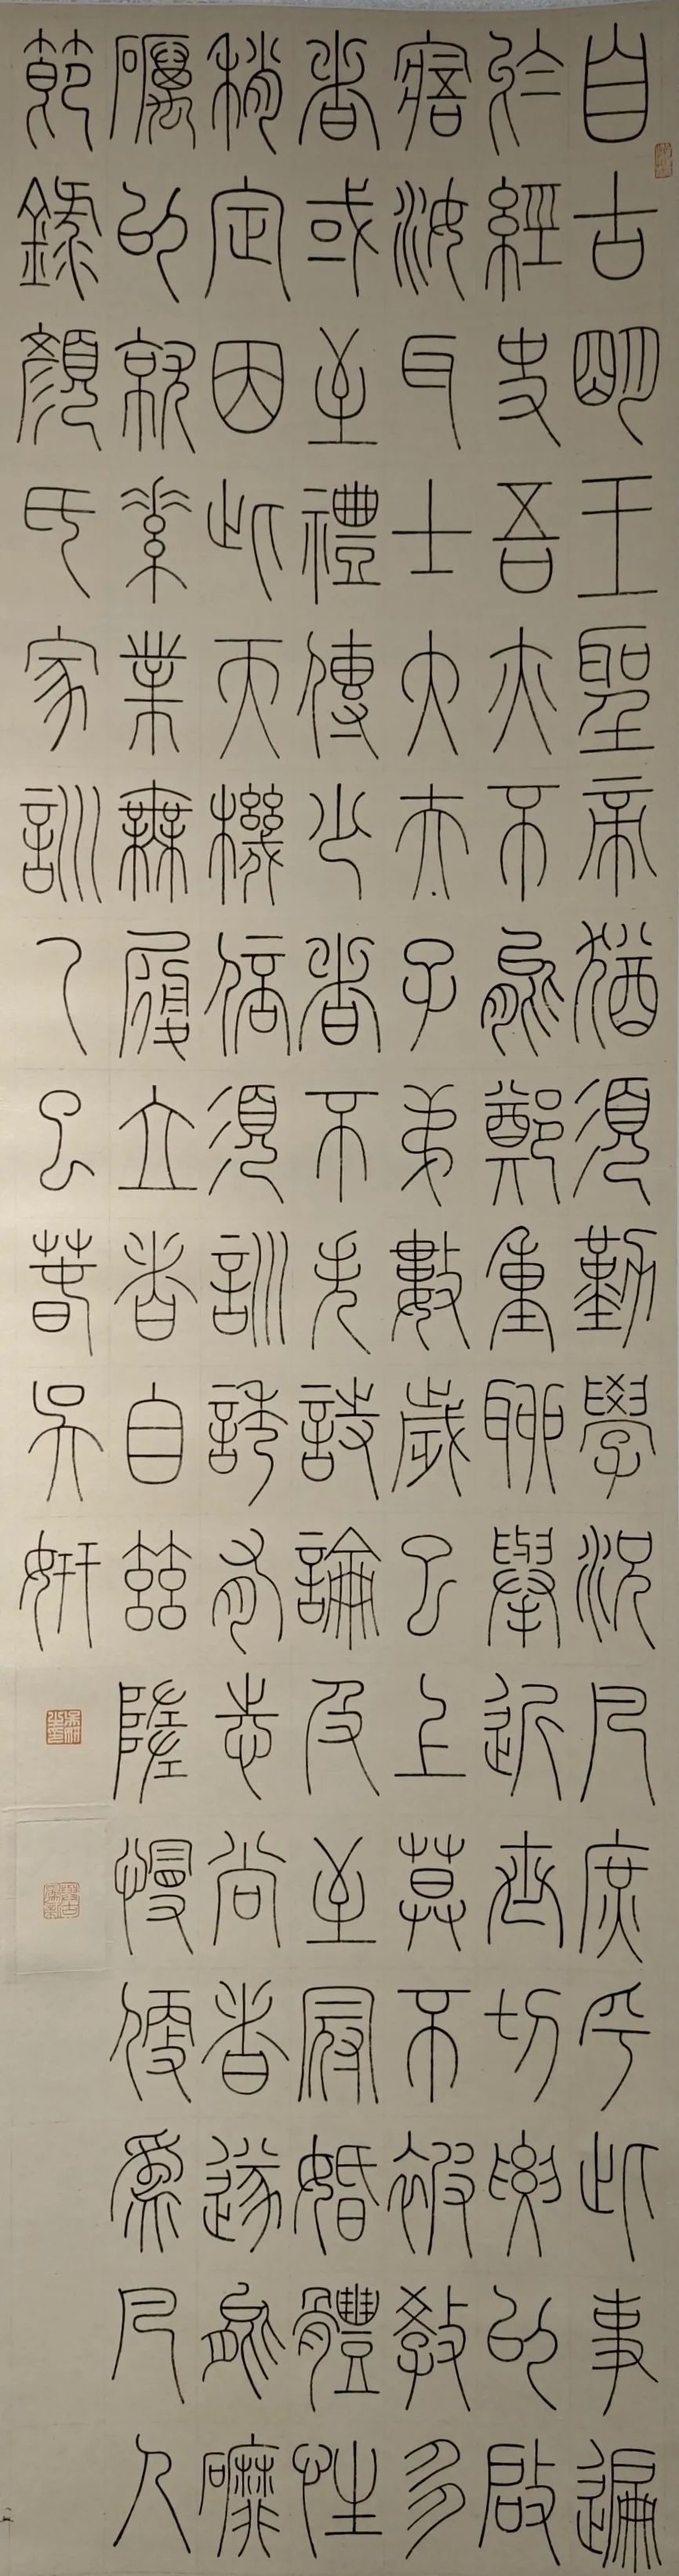 自古明王聖帝猶須勤學況凡庶乎此事遍
於經史吾亦不能鄭重聊舉近世切要以啟
寤汝耳士大夫子弟數歲已上莫不被教多
者或至禮傳少者不失詩論及至冠婚體性
稍定因此天機倍須訓誘有志尚者遂能磨
礪以就素業無履立者自茲墮慢便為凡人
節錄顏氏家訓乙巳春吳妍